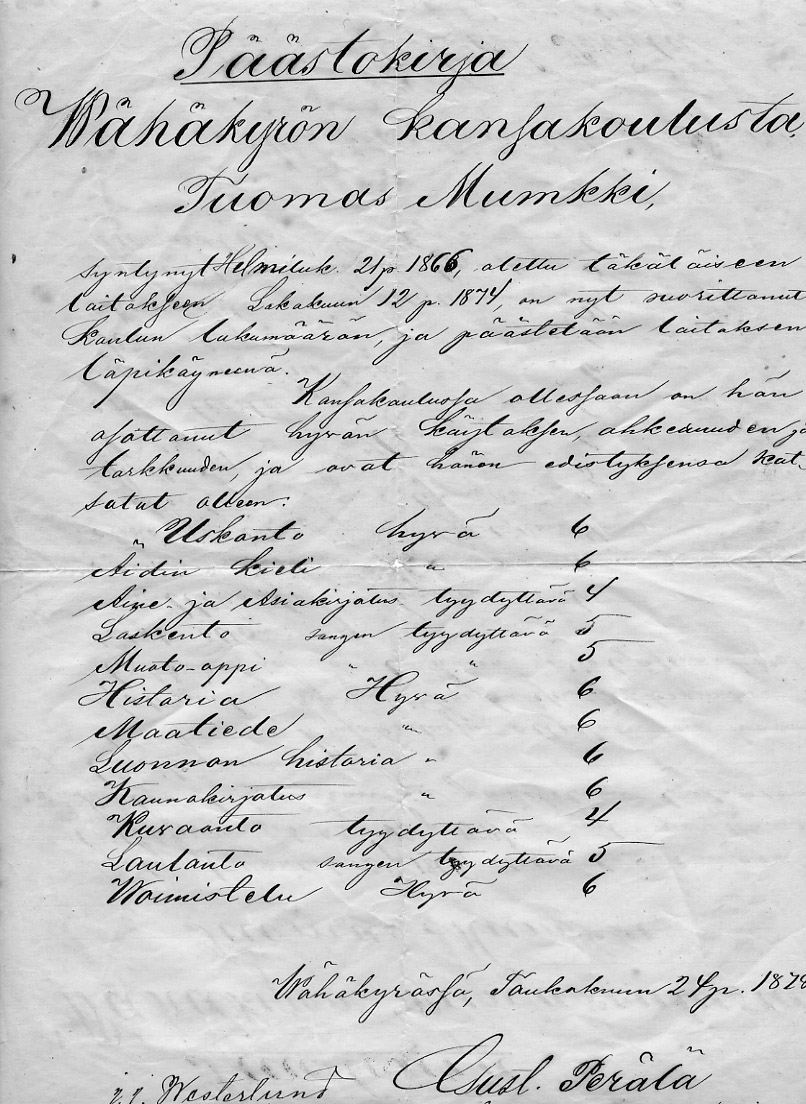 Päästokirja
Wähäkyrön kansakoulusta,
Tuomas Mumkki,
syntynyt Helmiluk. 21 p 1866, otettu täkäläiseen
laitokseen Lokakuun 12 p. 1874, on nyt suorittanut
koulun lukumäärän, ja päästetään laitoksen
läpikäyneenä.
Kansakoulussa ollessaan on hän
osottanut hyvän käytöksen, ahkeruuden ja
tarkkuuden, ja ovat hänen edistyksensä kat-
sotut olleen:
Uskonto hyvä 6
Äidin kieli " 6
Aine- ja Asiakirjotus tyydyttävä 4
Laskento sangen tyydyttävä 5
Muoto-oppi " " 5
Historia Hyvä 6
Maatiede " 6
Luonnon historia " 6
Kaunokirjotus " 6
Kuvaanto tyydyttävä 4
Laulanto sangen tyydyttävä 5
Woimistelu Hyvä 6
Wähäkyrössä, Toukokuun 24 p. 1878
j.j. Westerlund Gust. Perälä